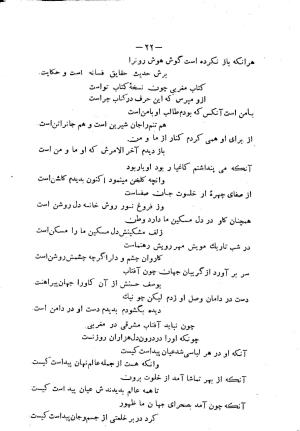 — ۲۲ —
هرانکه باز نکرده است گوش هوش رونرا
برش حدیث حقایق فسانه است و حکایت
کتاب مغربی چون نسخهٔ کتاب تواست
ازو مپرس که این حرف درکتاب چراست
بامن است آنکس که بودم طالب اوبامن است
هم تنم راجان شیرین است و هم جانرا تن است
از برای او همی کردم کنار از ما و من
باز دیدم آخر الامرش که او ما و من است
آنکه می پنداشتم کاغیار بود اویاربود
وانچه کلخن مینمود اکنون بدیدم کاشن است
از صفای چهرهٔ او خلوت جان صفاست
وز فروغ نور روش خانه دل روشن است
همچنان کاو در دل مسکین ما دارد وطن
زلف مشکینش دل مسکین ما را مسکن است
در شب تاریك مویش مهر رویش رهنماست
کاروان چشم و دارا گرچه چشمش روشن است
سر بر آورد از گریبان جهان چون آفتاب
یوسف حسنش از آن کاورا جهان پیراهن است
دست در دامان وصل او زدم لیکن چو نیك
دیده بگشودم بدیدم دست او در دامن است
چون نیابد آفتاب مشرقی در مغربی
چونکه اورا دردرون دل هزاران روزنست
آنکه او در هر لباسی شد عیان پیداست کیست
وانکه هست از جمله عالم نهان پیداست کیست
آنکه از بهر تماشا آمد از خلوت برون
تا همه عالم بدیدندش عیان پیداست کیست
آنکه چون آمد بصحرای جهان ما ظهور
کرد در بر خلعتی از جسم وجان پیداست کیست